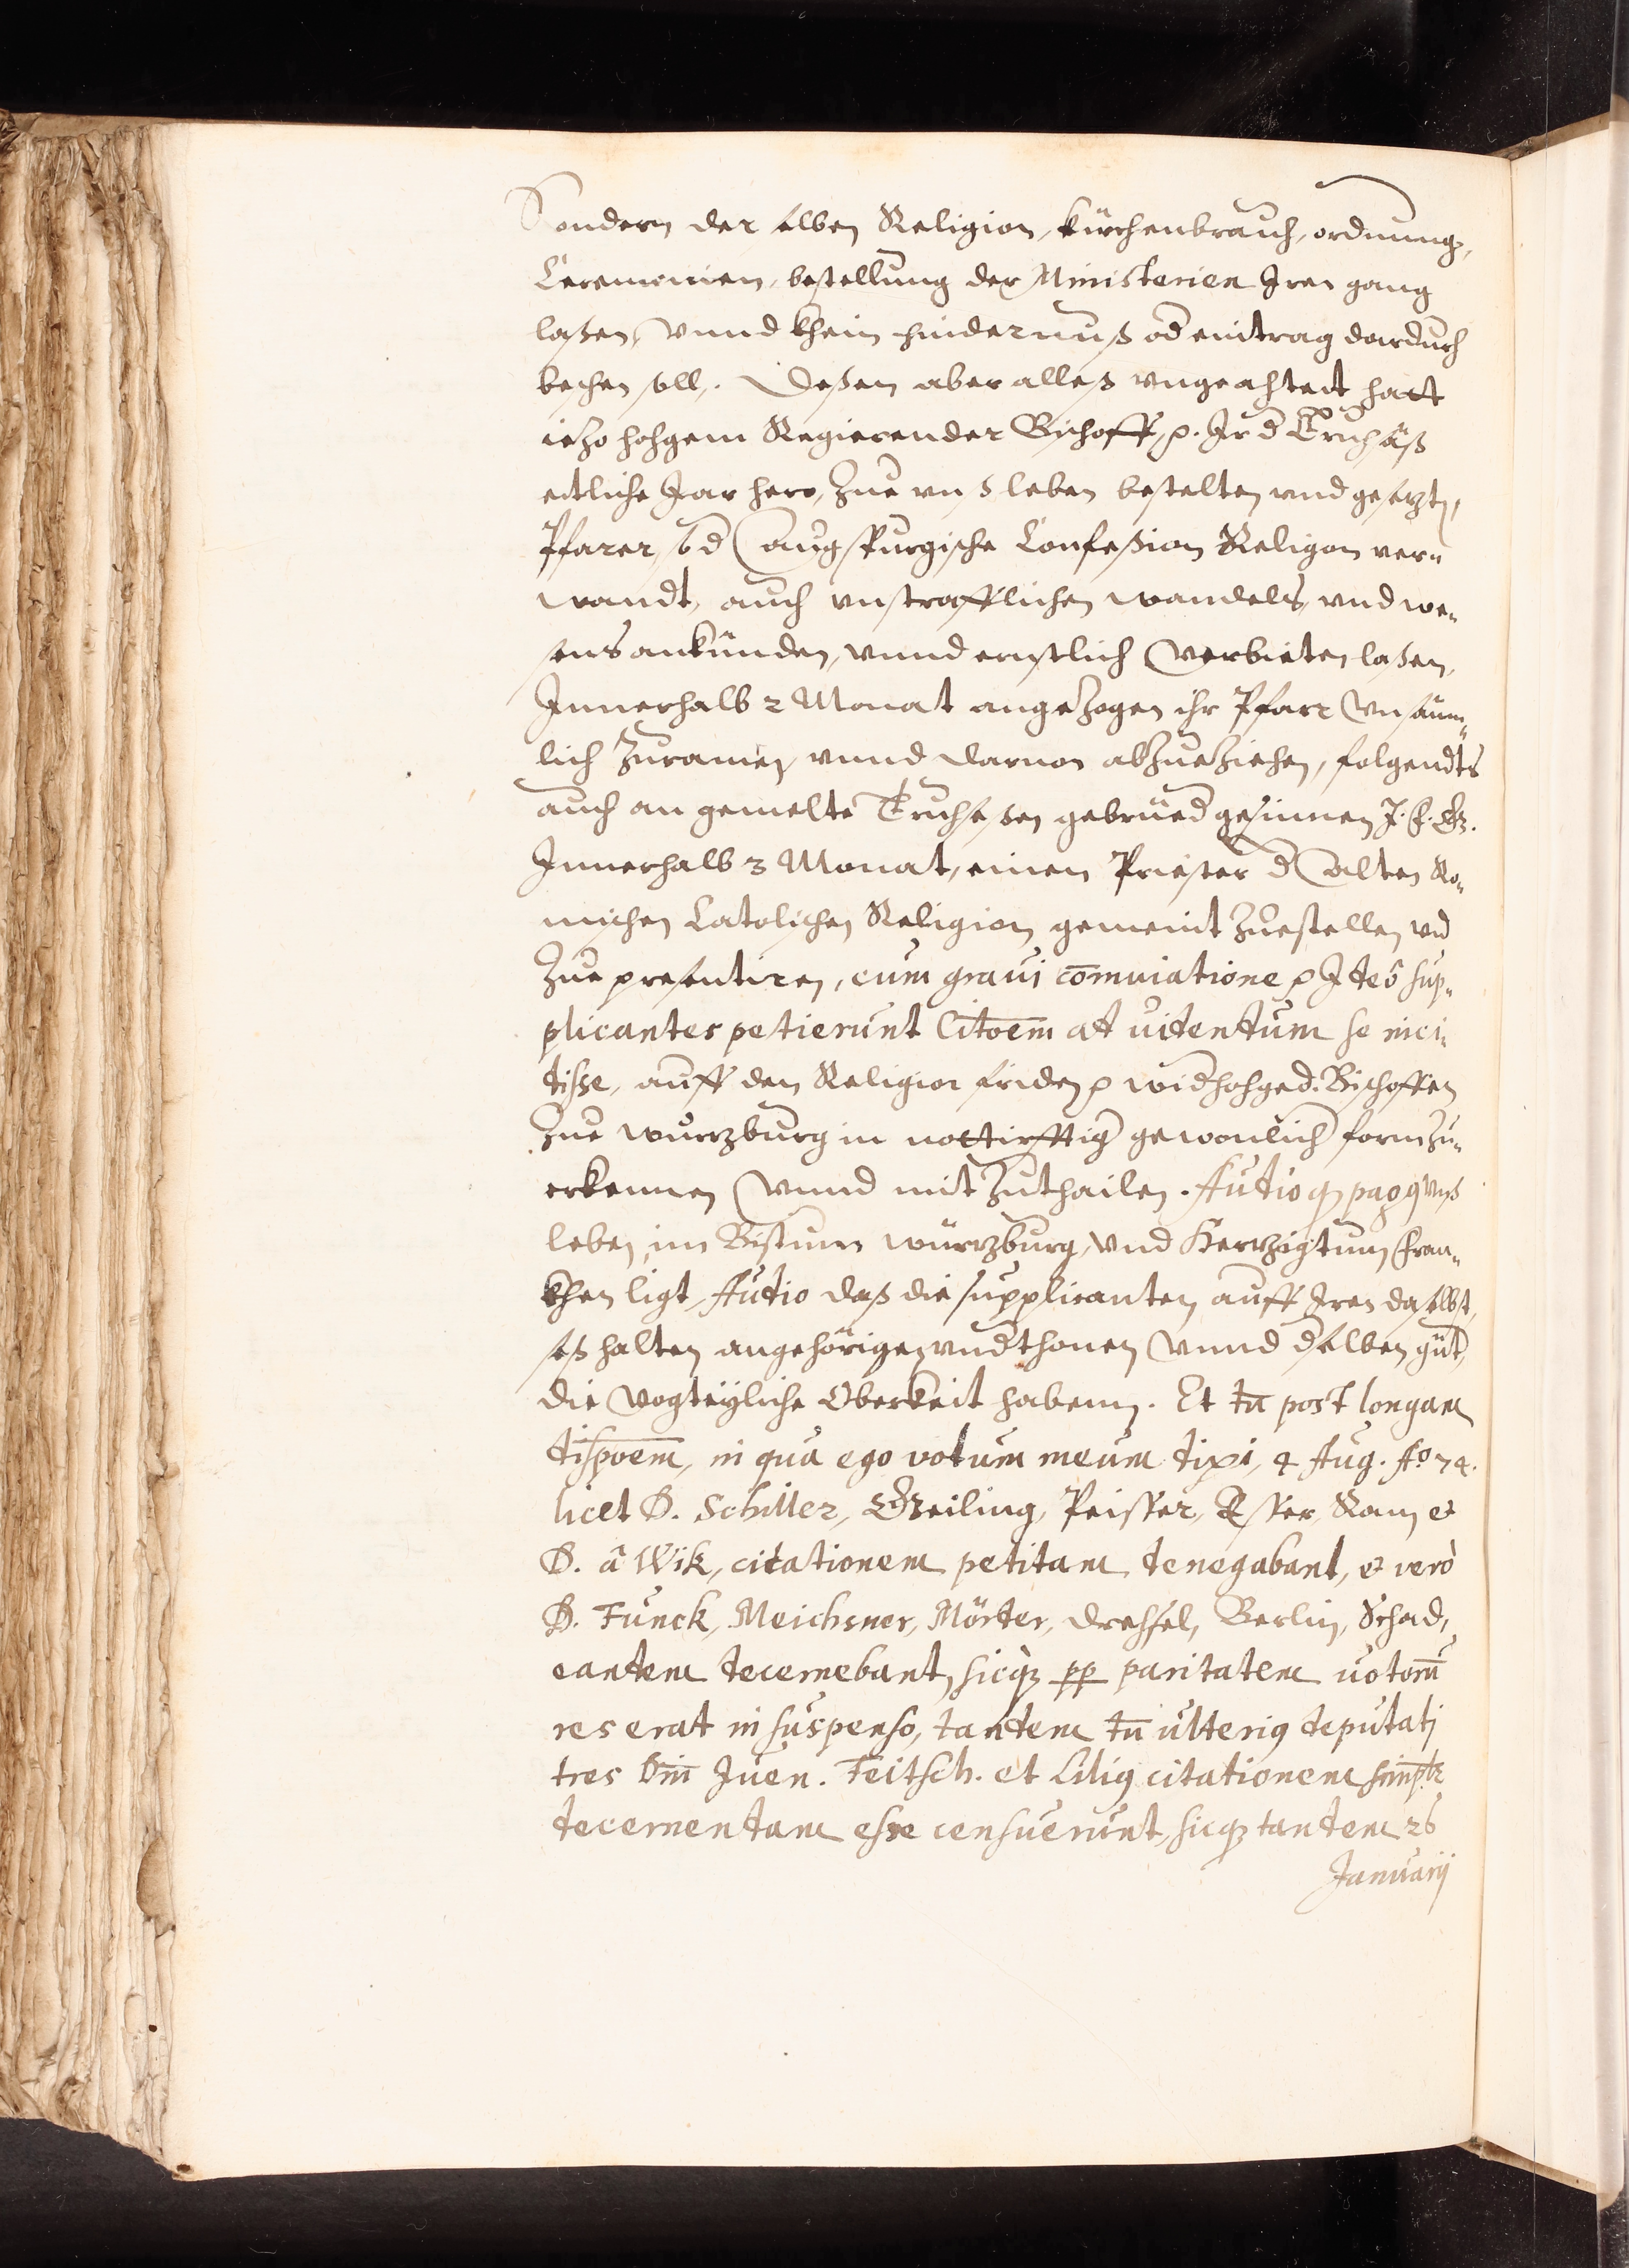 Sondern der selben Religion, kürchenbrauch, ordnung,
Ceremonien, bestellung der Ministerien Iren gang
laßen, vnnd khein hindernuß od eintrag dardurch
bechen soll. Deßen aber alles vngeachtet hatt
iezo hohgem Regierender Bischoff, p. Ir d Truchsäß
ettliche Jar hero, Zue vnsleben bestelten vnd gesetzten
Pfarer, so d Augspurgische Confeßion Religon ver¬
wandt, auch vnstrafflichen wandels, vnd we¬
sens ankünden, vnnd ernstlich verbieten laßen,
Innerhalb 2 Monat angezogen ihr Pfarr vnsäum¬
lich Zuramen, vnnd daruon abzueziehen, folgendts
auch an gemelte Truchseßen gebrüed gesinnen J. f. G.
Innerhalb 3 Monat, einen Priester d alten Ro¬
mischen Catolischen Religion gemeint Zuestellen vnd
Zue presentiren, cum graui com̄inatione p Ideo sup¬
plicantes petierunt Citōem at uidendum se inci¬
disse, auff den Religion friden p wid hohged. Bischoffen
Zue wurzburg in nottürfftig gewonlich form zu¬
erkennen vnnd mit Zuthailen. Audio q pagus Vnß
leben, im Bistum würzburg, vnd Herzigtum fran¬
khen ligt, Audio daß die supplicanten auff Iren daselbst,
seßhalten angehörigen vnderthonen vnnd dselben güt,
die vogteyliche Oberkeit habenn. Et tn̄ post longam
dispōem, in qua ego votum meum dixi, 4 Aug. Ao 74.
licet D. Schiller, Gzeiling, Peiffer, Kam et
D. à Wik, citationem petitam denegabant, et verò
D. Funck, Meichsner, Mörder, Drechsel, Berlin, Schad,
eandem decernebant, sicq; pp paritatem uotorū
res erat in suspenso, tandem tn̄ ulterius deputati
tres Dn̄i Juen. Feitsch. et Lilius citationem simplr
decernendam esse censuerunt, sicq; tandem 26
Januarij